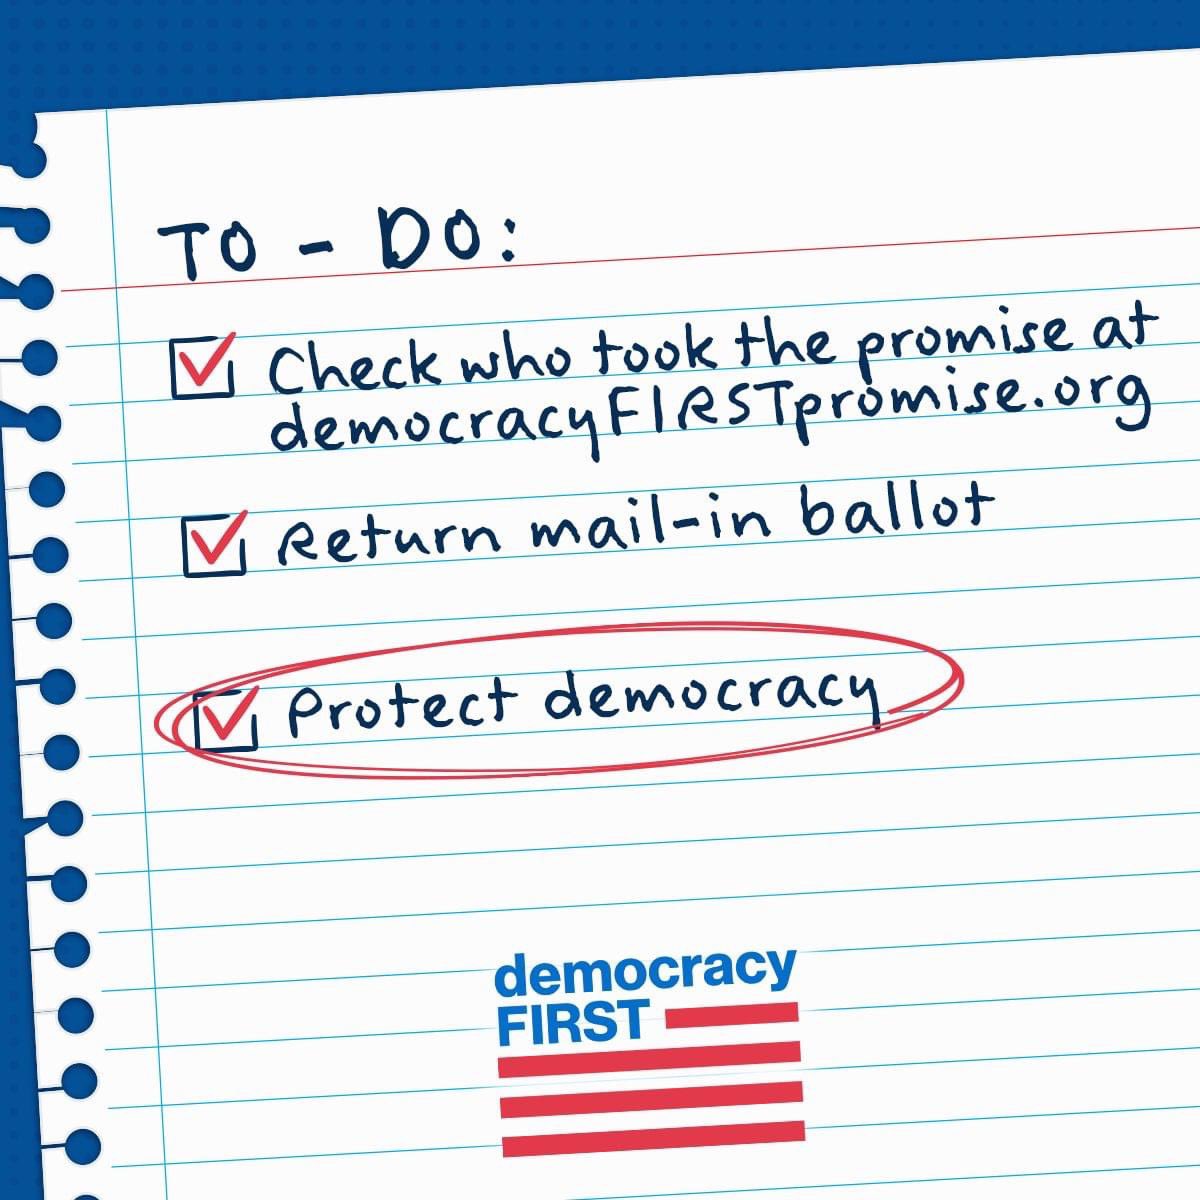 TO - DO:
Check who took the promise at
democracyFIRSTpromise.org
Return mail-in ballot
Protect democracy
democracy
FIRST